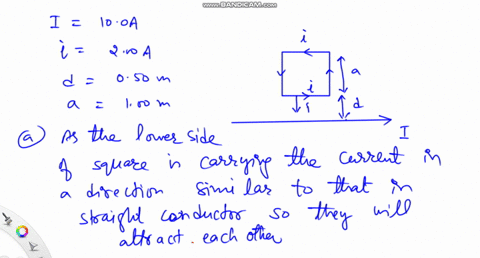 WWW.BANDICAM.COM
I = 10.0A
i = 2.00A
d = 0.50 m
a = 1.00 m
i
a
i
d
I
(a) As the lower side
of square is carrying the current in
a direction similar to that in
straight conductor so they will
attract each other